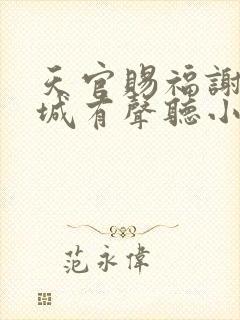 天官賜福謝
城有聲聽小
范永偉